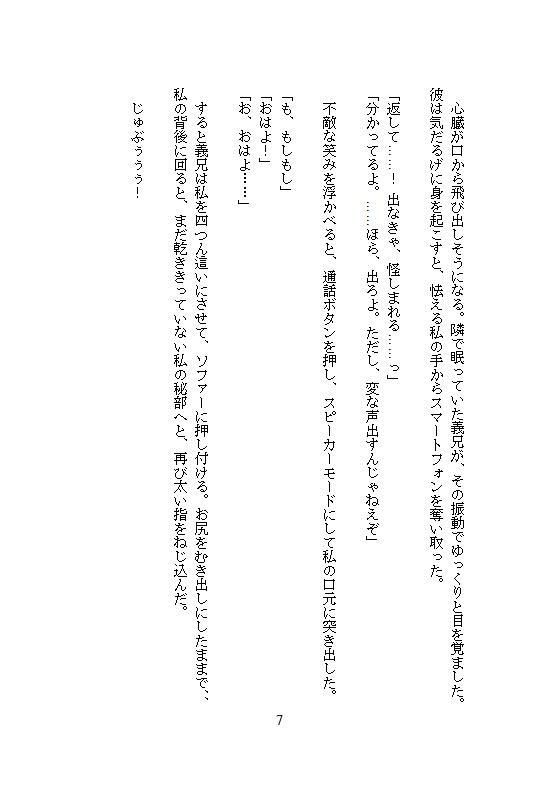 心臓が口から飛び出しそうになる。隣で眠っていた義兄が、その振動でゆっくりと目を覚ました。
彼は気だるげに身を起こすと、怯える私の手からスマートフォンを奪い取った。
「返して……！ 出なきゃ、怪しまれる……っ」
「分かってるよ。……ほら、出ろよ。ただし、変な声出すんじゃねえぞ」
不敵な笑みを浮かべると、通話ボタンを押し、スピーカーモードにして私の口元に突き出した。
「も、もしもし」
「おはよー！」
「お、おはよ……」
すると義兄は私を四つん這いにさせて、ソファーに押し付ける。お尻をむき出しにしたままで、、
私の背後に回ると、まだ乾ききっていない私の秘部へと、再び太い指をねじ込んだ。
じゅぶぅぅぅ！
7